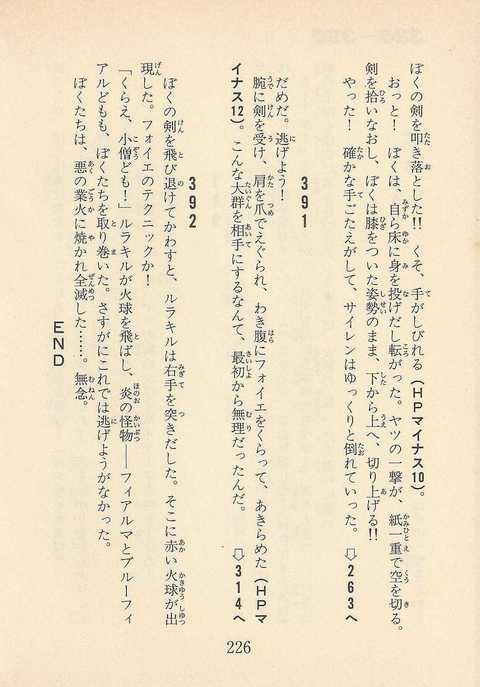 ぼくの剣を叩き落とした!! くそ、手がしびれる(HPマイナス10)。
おっと! ぼくは、自ら床に身を投げだし転がった。ヤツの一撃が、紙一重で空を切る。
剣を拾いなおし、ぼくは膝をついた姿勢のまま、下から上へ、切り上げる!!
やった! 確かな手ごたえがして、サイレンはゆっくりと倒れていった。 ⇨263へ
391
だめだ。逃げよう!
腕に剣を受け、肩を爪でえぐられ、わき腹にフォイエをくらって、あきらめた(HPマ
イナス12)。こんな大群を相手にするなんて、最初から無理だったんだ。 ⇨314へ
392
ぼくの剣を飛び退けてかわすと、ルラキルは右手を突きだした。そこに赤い火球が出
現した。フォイエのテクニックか!
「くらえ、小僧ども!」ルラキルが火球を飛ばし、炎の怪物――フィアルマとブルーフィ
アルどもも、ぼくたちを取り巻いた。さすがにこれでは逃げようがなかった。
ぼくたちは、悪の業火に焼かれ全滅した……。無念。
END
226